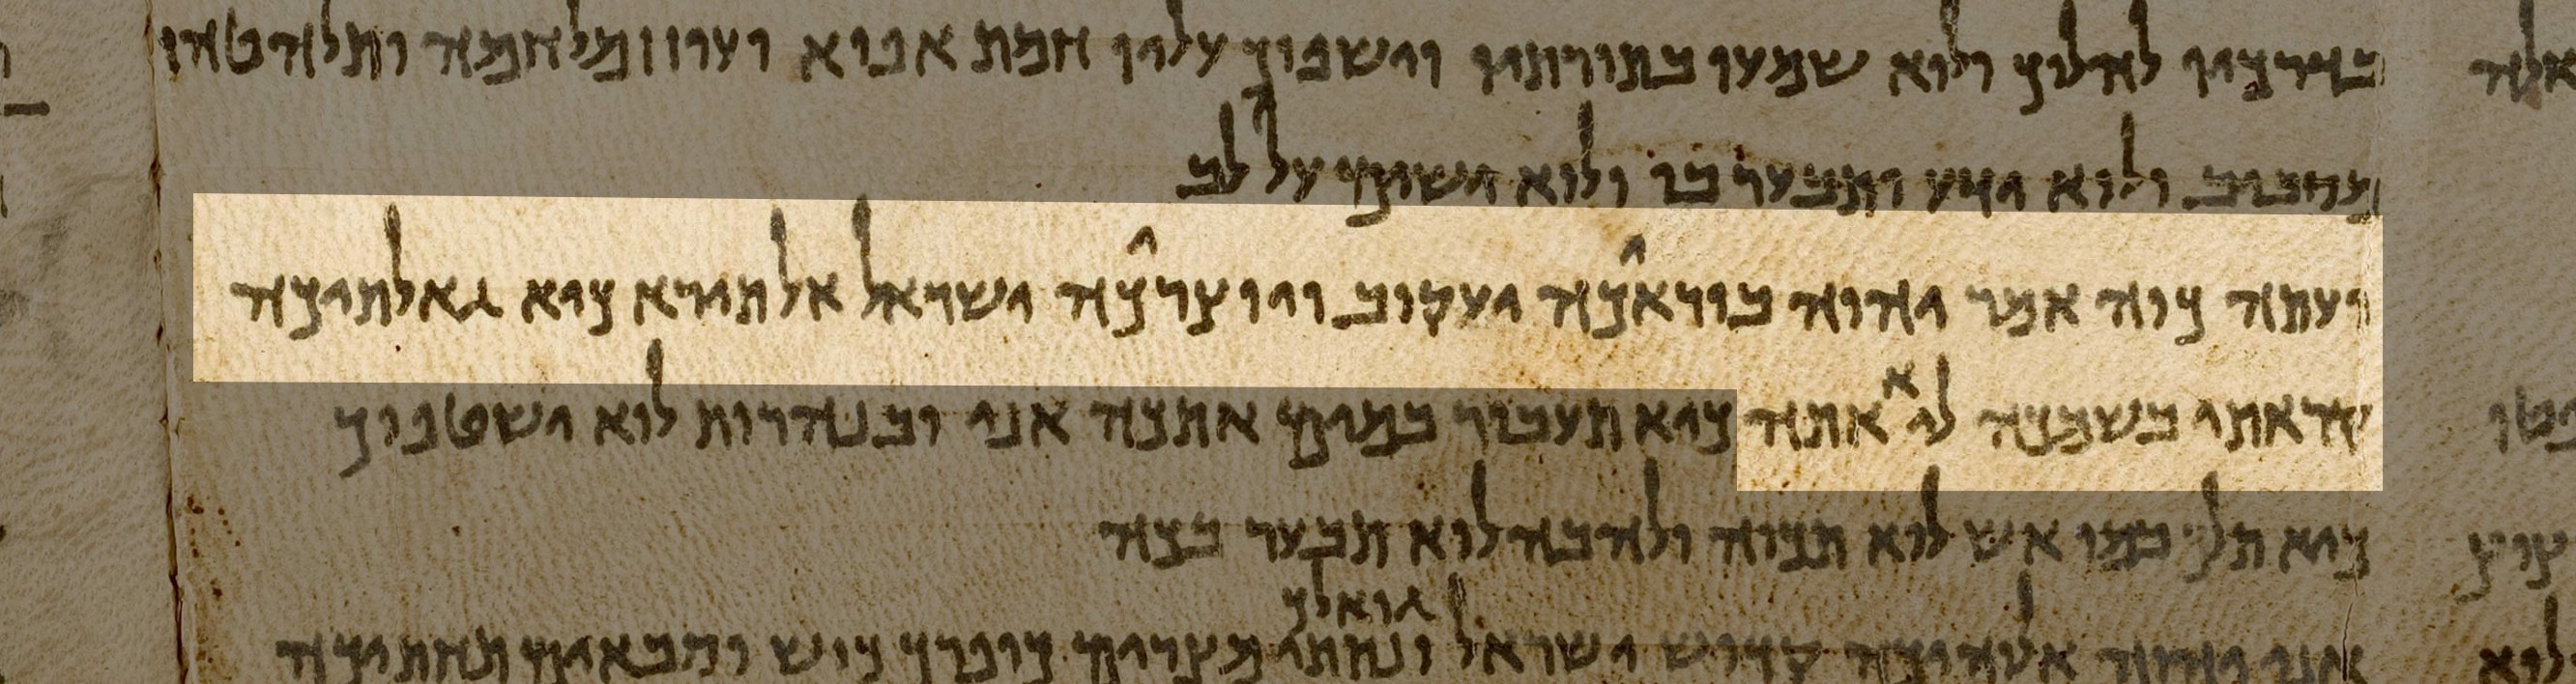 בדרכיו להלוך ולוא שמעו בתורתיו וישפוך עליו חמת אפוא ועזוז מלחמה ותלהטהו
מסביב ולוא ידע ותבער בו ולוא ישים על לב
ועתה כוה אמר יהוה בוראכה יעקוב ויוצרכה ישראל אל תירא כיא גאלתיכה
קראתי בשמכה ליא אתה כיא תעבור במים אתכה אני ובנהרות לוא ישטפוך
כיא תלך במו אש לוא תכוה ולהבה לוא תבער בכה
גואלך
אני יהוה אלוהיכה קדוש ישראל ונתתי מצרים כופרך כוש וסבאים תחתיכה